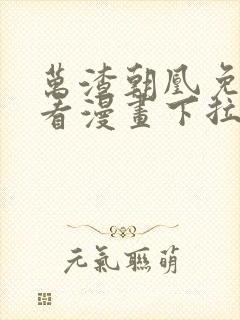 萬渣朝凰免
看漫畫下拉
元氣聯萌